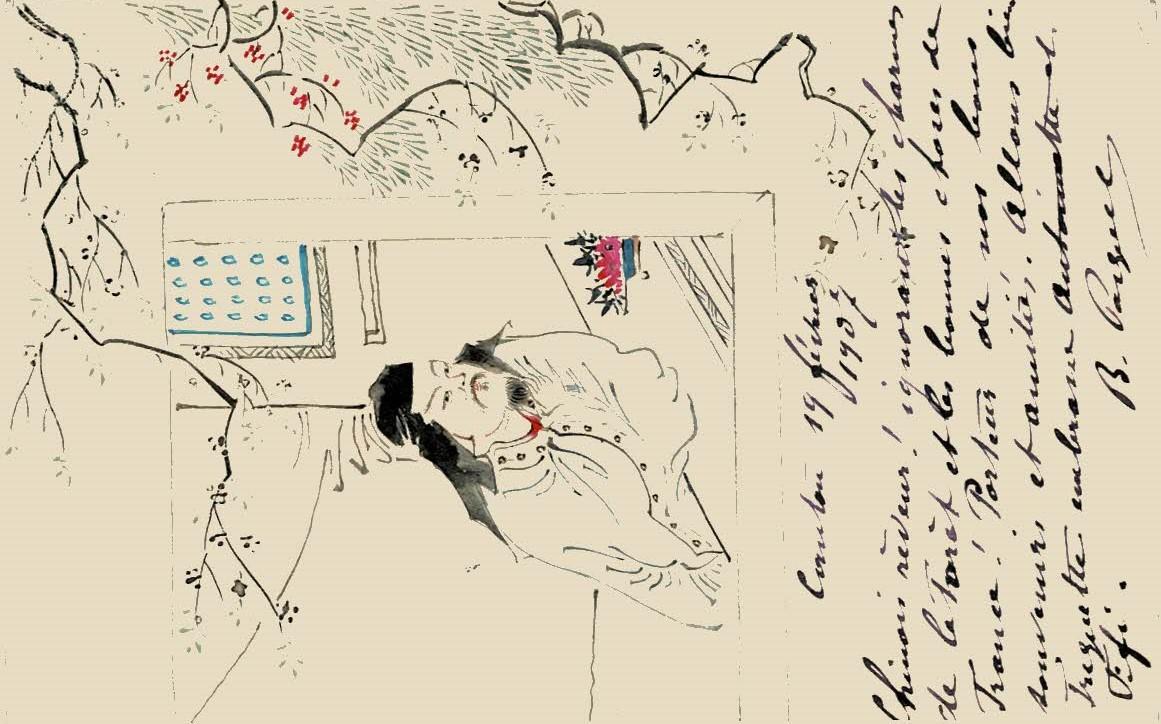 Canton 19 février
1907
Chinois rêveur ! ignorant les charmes
de la forêt et les bonnes choses de
France ! Porteur de nos bons
souvenirs et amitiés. Allons bien
embrasse Antoinette et
Fifi.
B.